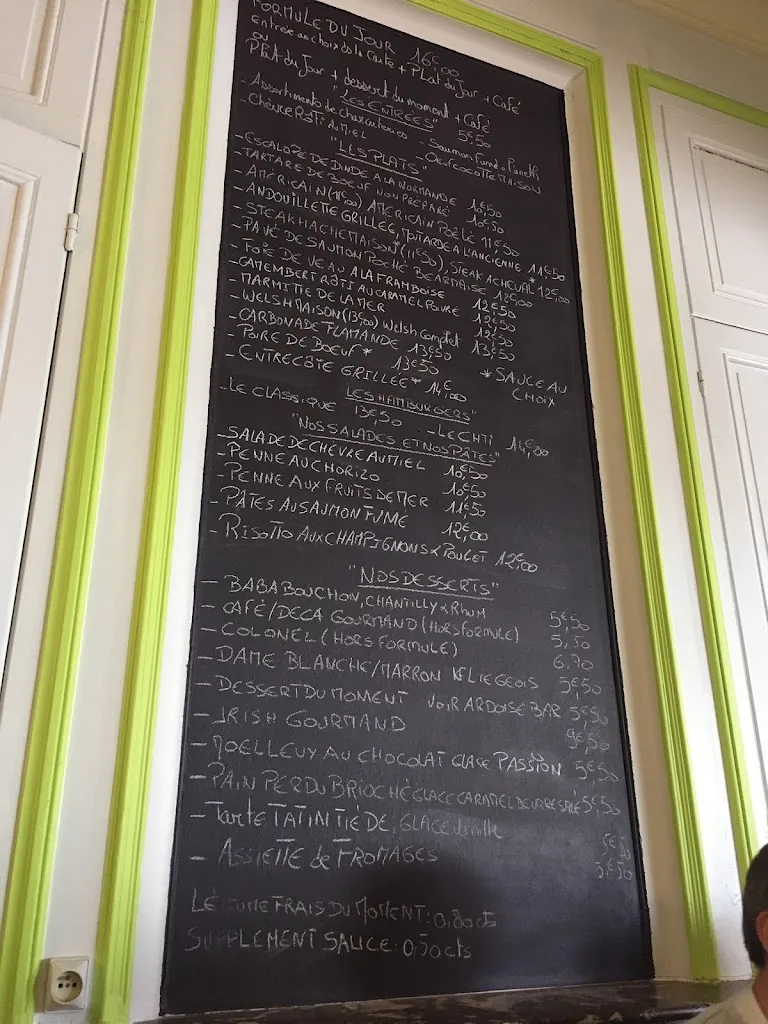 FORMULE DU JOUR 16€,00
Entrée au choix de la Carte + Plat du Jour + Café
ou
Plat du Jour + dessert du moment + Café
"LES ENTRÉES" 5€50
- Assortiments de charcuteries - Saumon Fumé, Paneth
- Chèvre Rôti Au Miel - Oeuf cocotte MAISON
"LES PLATS"
- ESCALOPE DE DINDE A LA NORMANDE 10€,50
- TARTARE DE BOEUF NON PRÉPARÉ 10€50
- AMÉRICAIN (11€00) AMERICAIN POÊLÉ 11€50
- ANDOUILLETTE GRILLÉE, MOUTARDE A L'ANCIENNE 11€50
- STEAK HACHÉ MAISON* (11€50), STEAK A CHEVAL* 12€,00
- PAVÉ DE SAUMON POCHÉ BEARNAISE 12€00
- FOIE DE VEAU A LA FRAMBOISE 12€50
- CAMEMBERT RÔTI AU CARAMEL POIVRE 12€50
- MARMITTE DE LA MER 12€50
- WELSH MAISON (13,00) Welsh Complet 13€50
- CARBONADE FLAMANDE 13€50
- POIRE DE BOEUF* 13€50
- ENTRECÔTE GRILLÉE* 14€,00
* SAUCE AU CHOIX
"LES HAMBURGERS"
- LE CLASSIQUE 13€,50 - LE CHTI 14€00
"NOS SALADES ET NOS PÂTES"
- SALADE DE CHÈVRE AU MIEL 10€,50
- PENNE AU CHORIZO 10€50
- PENNE AUX FRUITS DE MER 11€50
- PÂTES AU SAUMON FUMÉ 12€,00
- RISOTTO AUX CHAMPIGNONS & POULET 12€00
"NOS DESSERTS"
- BABA BOUCHON, CHANTILLY & RHUM 5€,50
- CAFÉ/DECA GOURMAND (HORS FORMULE) 5,50
- COLONEL (HORS FORMULE) 6,70
- DAME BLANCHE/MARRON LIEGEOIS 5€50
- DESSERT DU MOMENT VOIR ARDOISE BAR 5€50
- IRISH GOURMAND 9€,50
- MOELLEUX AU CHOCOLAT GLACE PASSION 5€50
- PAIN PERDU BRIOCHÉ GLACE CARAMEL BEURRE SALÉ 5€50
- Tarte TATIN TIÈDE, GLACE Vanille 5€50
- ASSIETTE de FROMAGES 5€50
LÉGUME FRAIS DU MOMENT: 0,80cts
SUPPLÉMENT SAUCE: 0,50cts